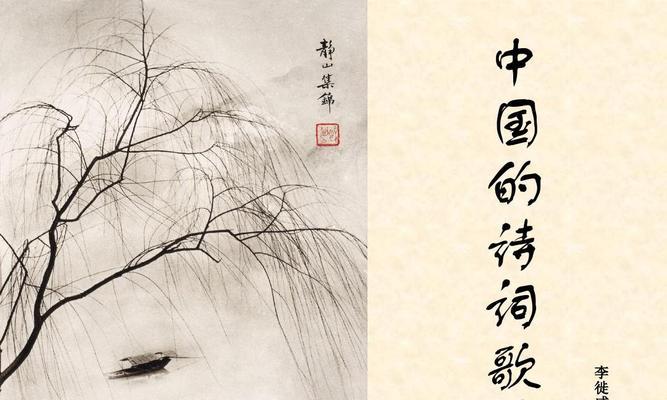 静山集錦
中国的诗词歌
李徙